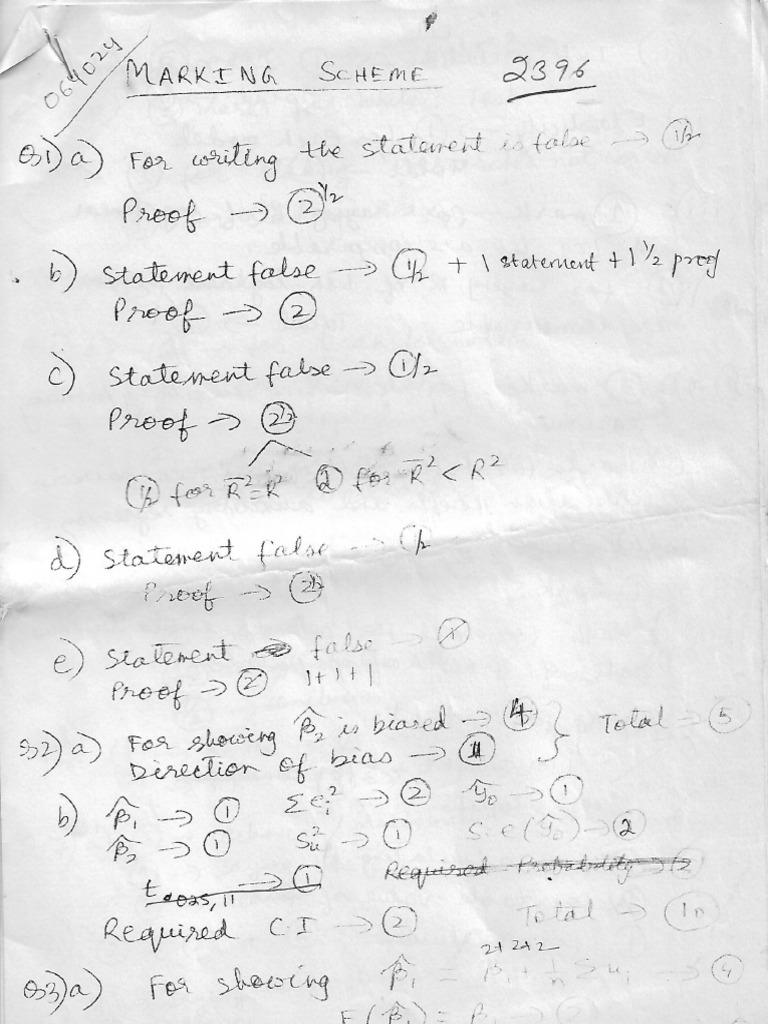 064024
MARKING SCHEME 2396
Q1) a) For writing the statement is false → 1/2
Proof → 2 1/2
b) Statement false → 1/2 + 1 statement + 1 1/2 proof
Proof → 2
c) Statement false → 1/2
Proof → 2 1/2
1/2 for R̄² = R² 2 for R̄² < R²
d) Statement false → 1/2
Proof → 2 1/2
e) Statement false →
Proof → 2 1+1+1
Q2) a) For showing β̂₂ is biased → 4 } Total → 5
Direction of bias → 1
b) β̂₁ → 1 Σei² → 2 ŷ₀ → 1
β̂₂ → 1 Su² → 1 S.e(ŷ₀) → 2
t.025, 11 → 1 Required Probability → 2
Required C.I → 2 Total → 10
2+2+2
Q3) a) For showing β̂₁ = β₁ + 1/n Σui → 4
E(β̂₁) = β₁ →